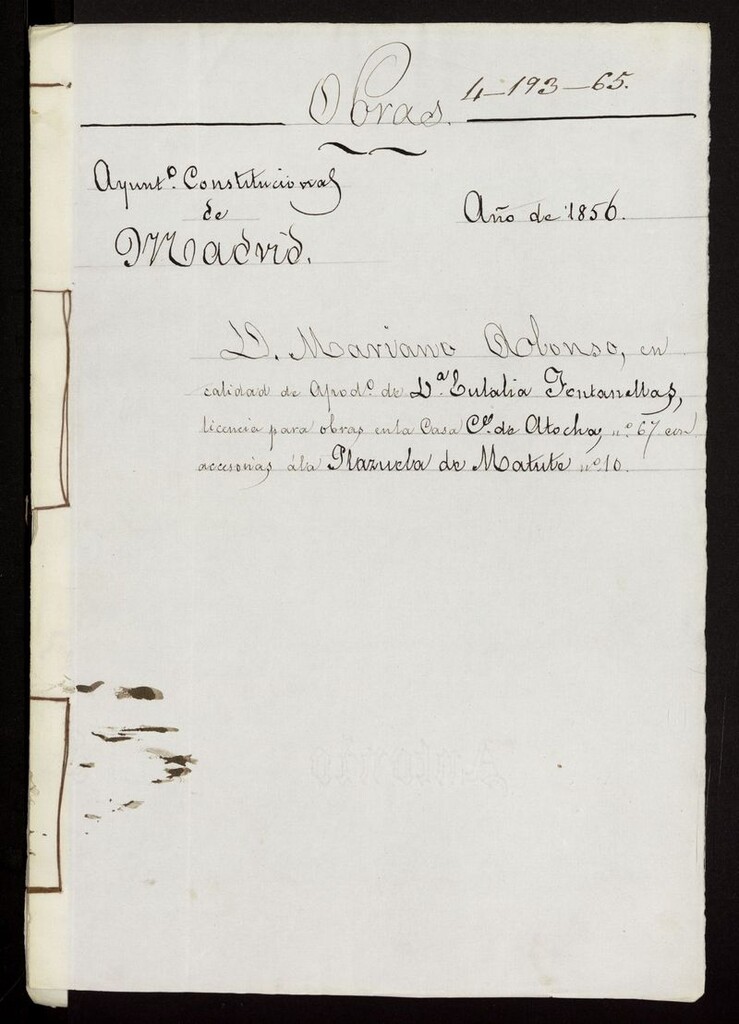 Obras. 4-193-65.
Ayuntº. Constitucional
de
Madrid.
Año de 1856.
D. Mariano Alonso, en
calidad de Apodº. de Dª. Eulalia Fontanellas,
licencia para obras en la Casa Cˡᵉ. de Atocha, nº 67 con
accesorias á la Plazuela de Matute nº 10.